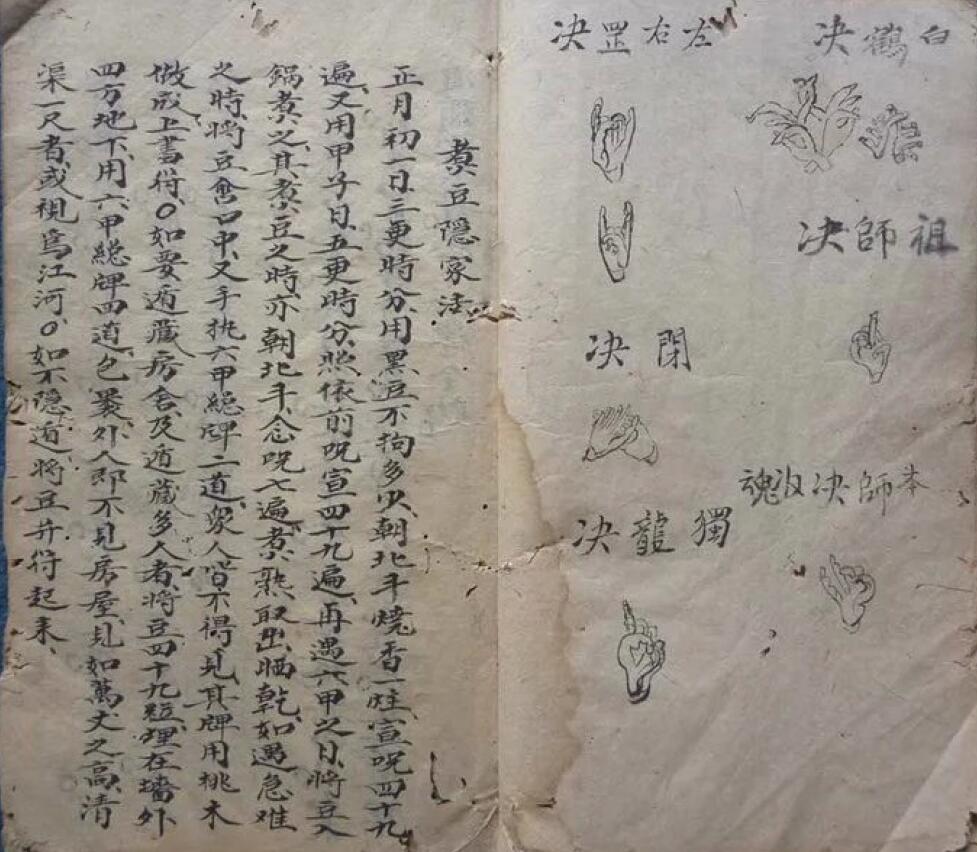 白鶴决
祖師决
本師决收魂
左右罡决
閉决
獨龍决
煑豆隱家法
正月初一日、三更時分、用黑豆不拘多少、朝北斗燒香一炷、宣呪四十九
遍、又用甲子日、五更時分、照依前呪宣四十九遍、再遇六甲之日、將豆入
鍋煑之、其煑豆之時、亦朝北斗、念呪七遍、煑熟取出晒乾、如遇急难
之時、將豆含口中、又手执六甲總牌二道、衆人皆不得見、其牌用桃木
做成上書符、○如要遁藏房舍、及遁藏多人者、將豆四十九粒、埋在墙外
四方地下、用六甲總牌四道、包裹、外人即不見房屋、見如萬丈之高、清
渠一尺者、或視爲江河、○如不隱遁、將豆并符起来、